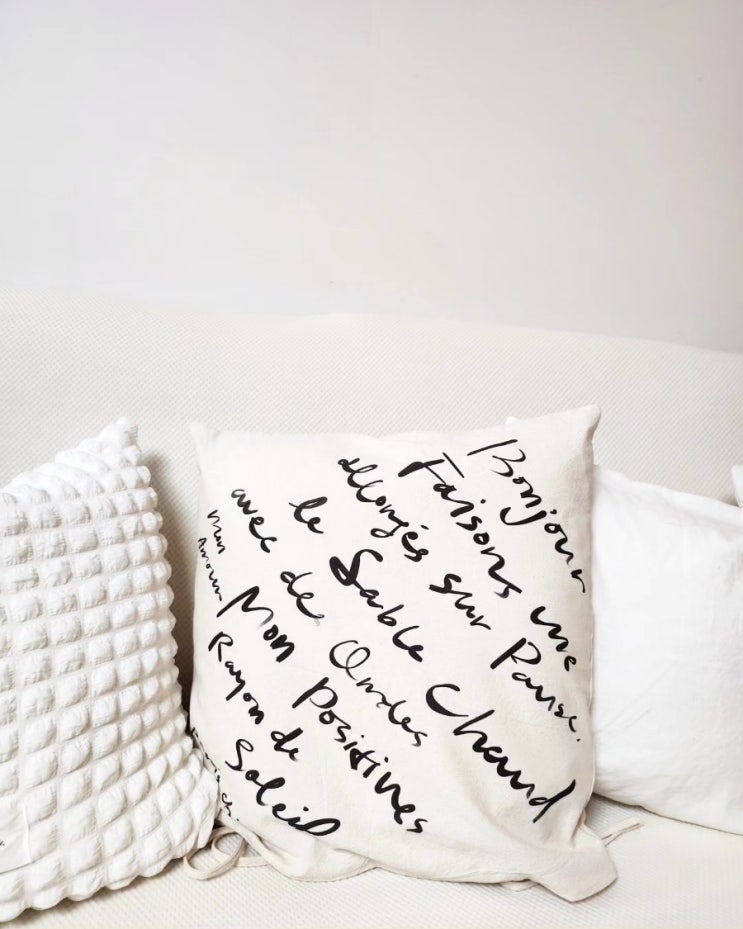 Bonjour
Faisons une Pause.
allongés sur
le Sable Chaud
avec de Ondes Positives
Mon
Amour
Mon
Rayon de
Soleil